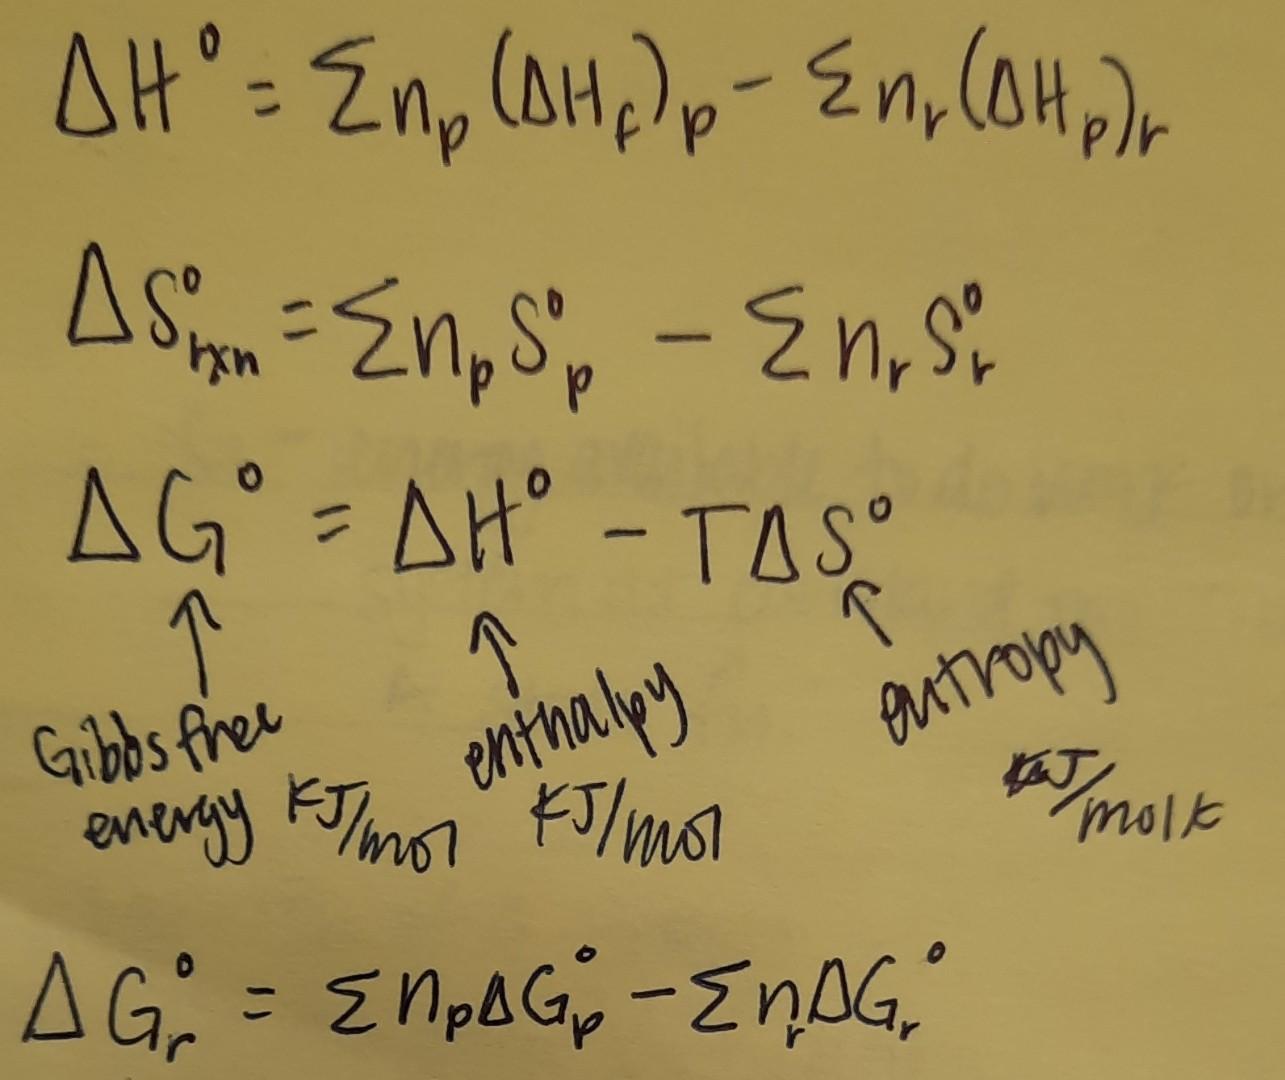 ΔH° = Σn_p (ΔH_f)_p - Σn_r (ΔH_p)_r
ΔS°_rxn = Σn_p S°_p - Σn_r S°_r
ΔG° = ΔH° - TΔS°
↑ ↑ ↑
Gibbs free energy KJ/mol
enthalpy KJ/mol
entropy
J/molK
ΔG°_r = Σn_pΔG°_p - Σn_rΔG_r°